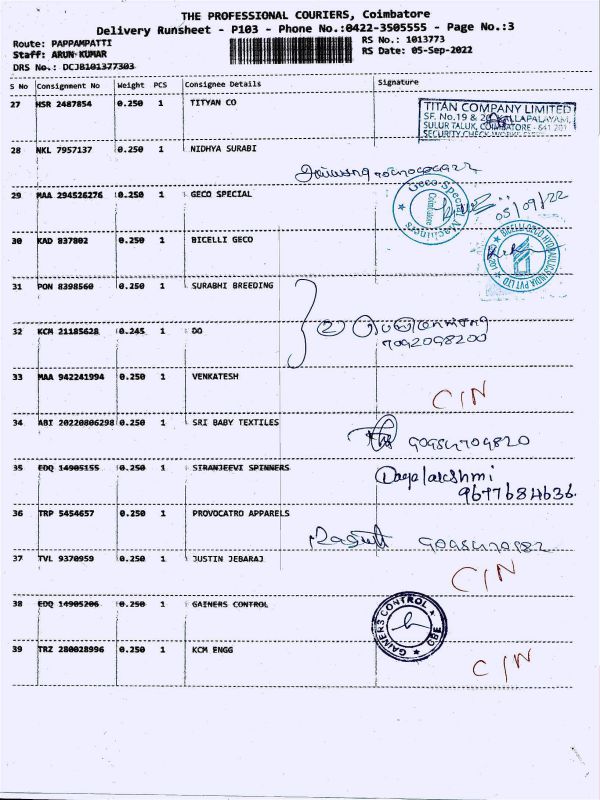 THE PROFESSIONAL COURIERS, Coimbatore
Delivery Runsheet - P103 - Phone No.:0422-3505555 - Page No.:3
Route: PAPPAMPATTI
RS No.: 1013773
Staff: ARUN KUMAR
RS Date: 05-Sep-2022
DRS No.: DCJB101377303
S No Consignment No Weight PCS Consignee Details Signature
27 HSR 2487854 0.250 1 TITYAN CO
TITAN COMPANY LIMITED
SF. No.19 & 20 KALLAPALAYAM,
SULUR TALUK, COIMBATORE - 641 201
28 NKL 7957137 0.250 1 NIDHYA SURABI
29 MAA 294526276 0.250 1 GECO SPECIAL
Geco Special Machines
Coimbatore
05/09/22
30 KAD 837802 0.250 1 BICELLI GECO
31 PON 8398560 0.250 1 SURABHI BREEDING
32 KCM 21185628 0.245 1 DO
2
7092098200
33 MAA 942241994 0.250 1 VENKATESH C/N
34 ABI 20220806298 0.250 1 SRI BABY TEXTILES
35 EDQ 14905155 0.250 1 SIRANJEEVI SPINNERS
9677684636.
36 TRP 5454657 0.250 1 PROVOCATRO APPARELS
37 TVL 9370959 0.250 1 JUSTIN JEBARAJ C/N
38 EDQ 14905206 0.250 1 GAINERS CONTROL
GAINERS CONTROL CBE
39 TRZ 280028996 0.250 1 KCM ENGG C/N